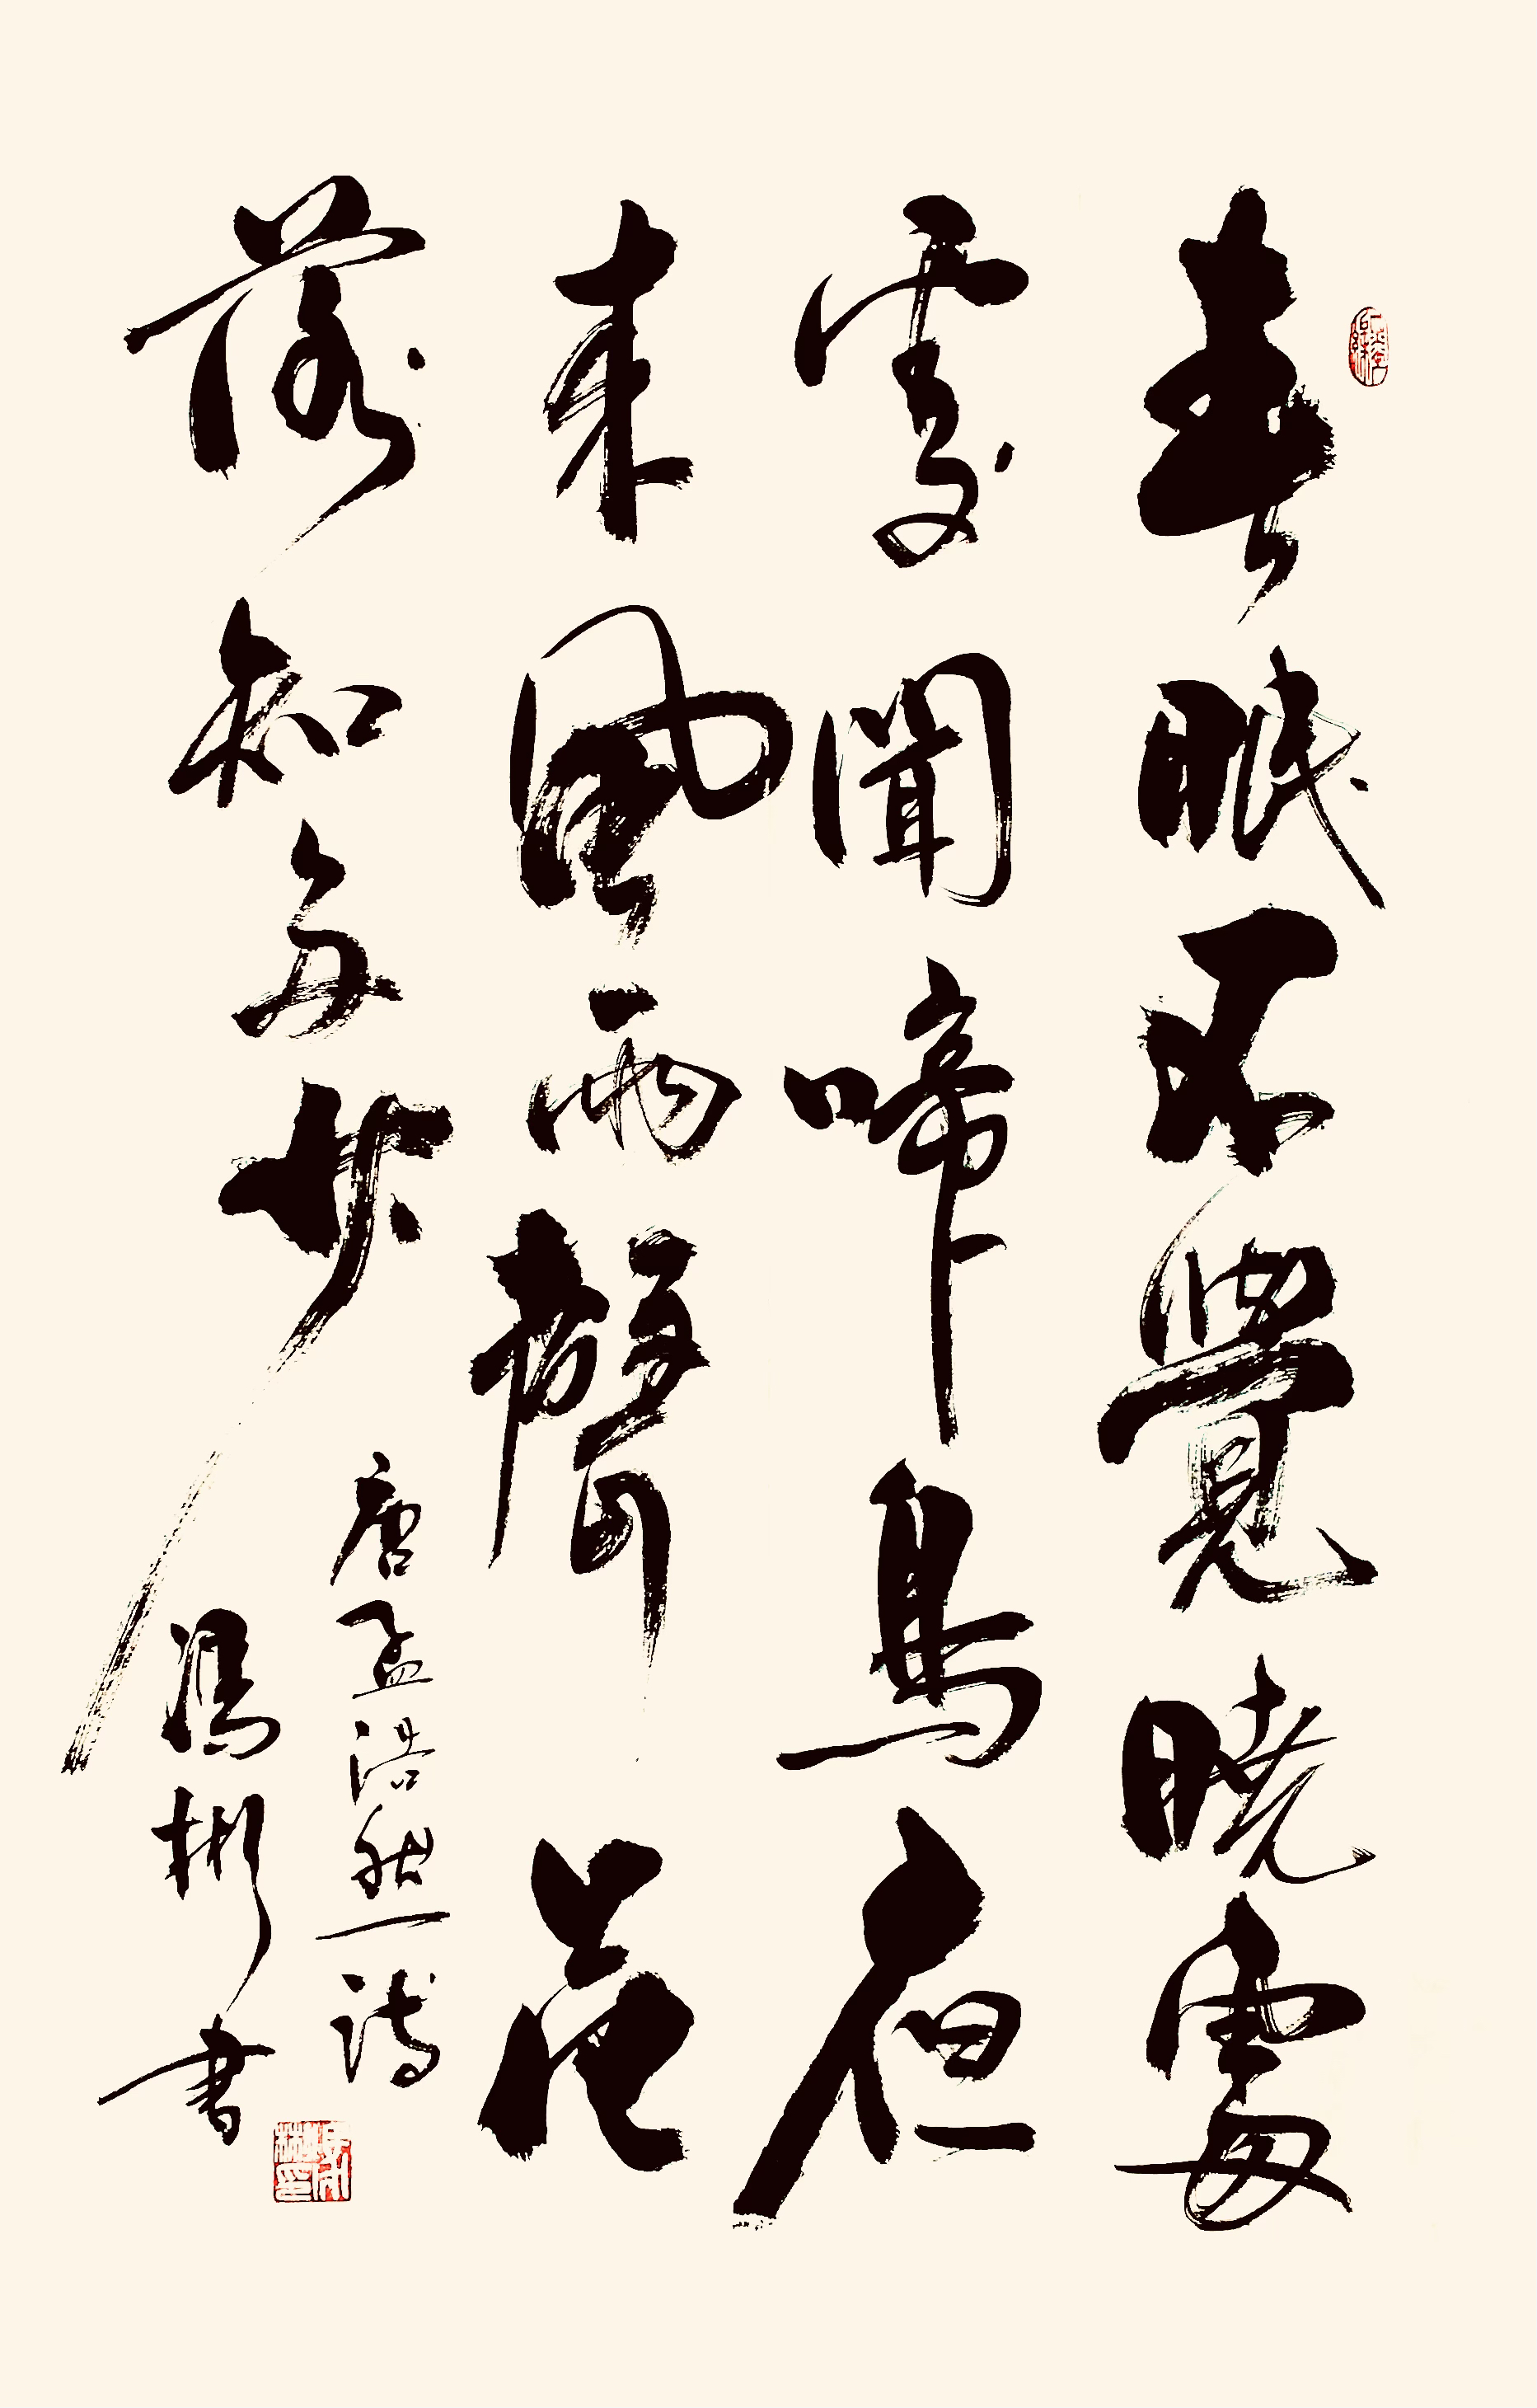 春眠不覺曉處
處聞啼鳥夜
來風雨聲花
落知多少
唐孟浩然一詩
馮彬書